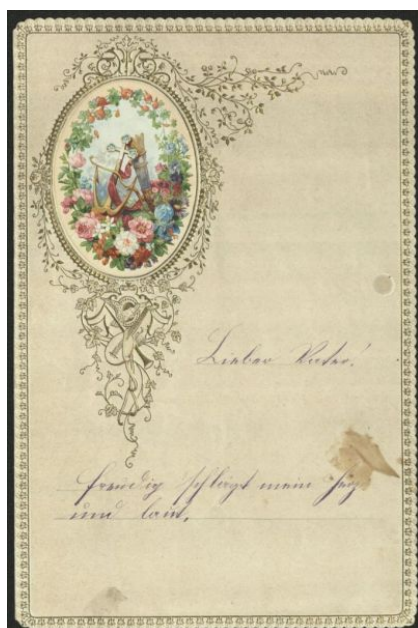 Lieber Vater!
Freudig schlägt mein Herz
und laut,